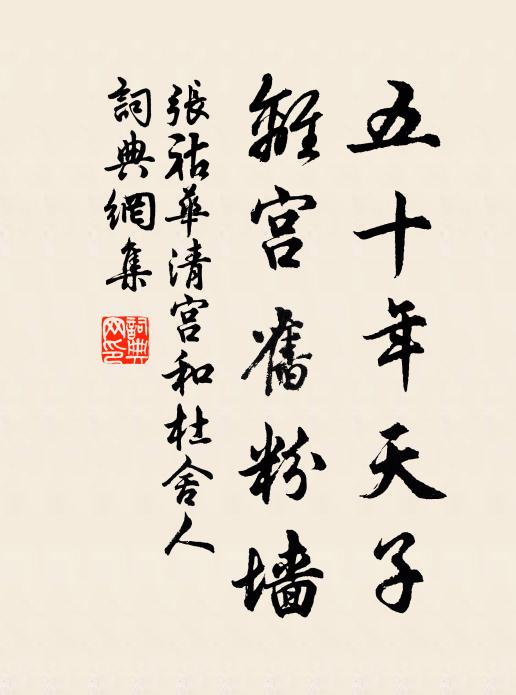 五十年天子
離宫舊粉墙
張祜華清宫和杜舍人
詞典網集
詞典
网印